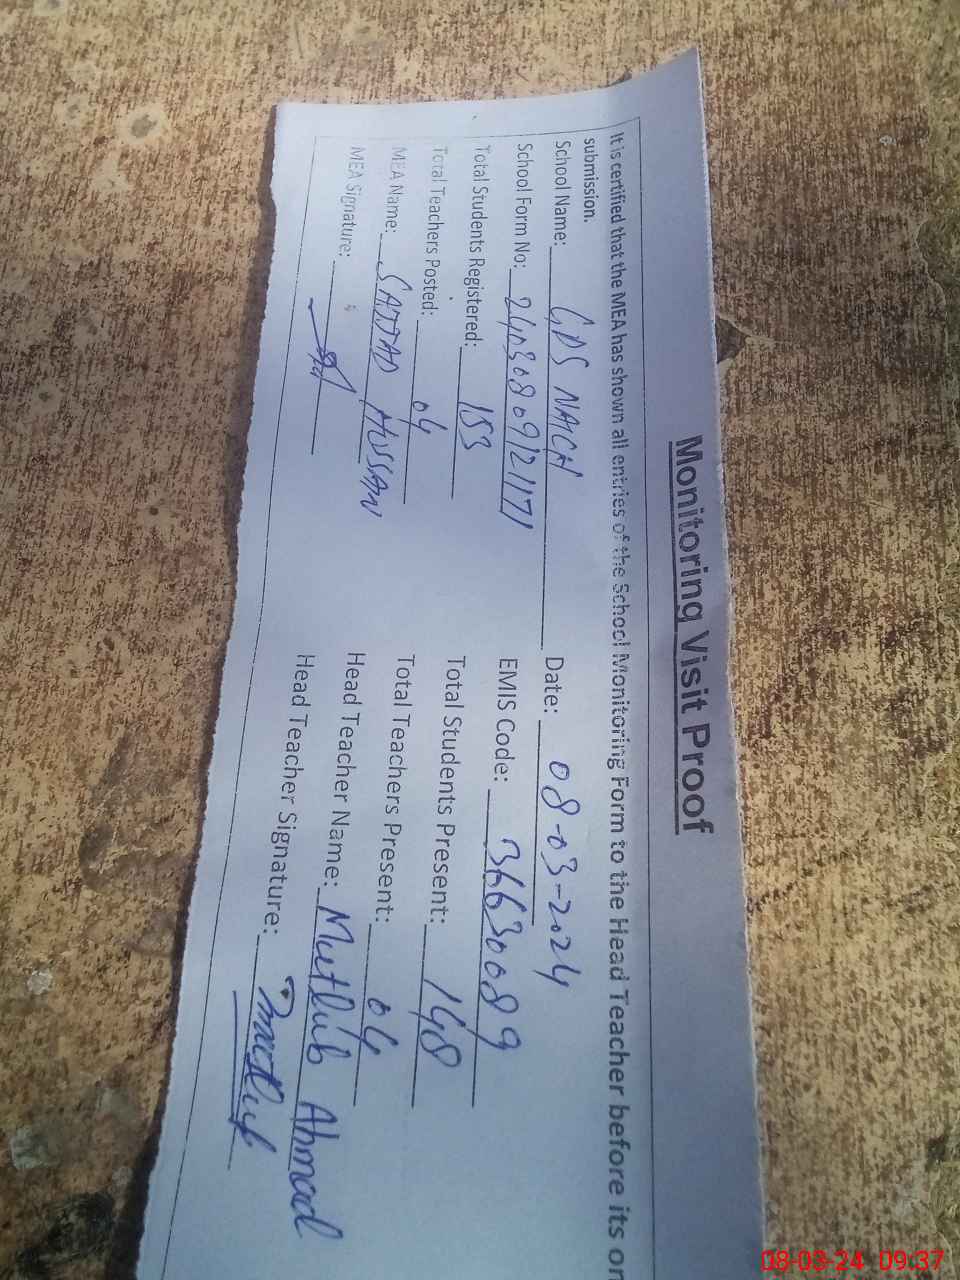 Monitoring Visit Proof
It is certified that the MEA has shown all entries of the School Monitoring Form to the Head Teacher before its on
submission.
School Name: GPS NACH Date: 08-03-2024
School Form No: 24030809121171 EMIS Code: 36630089
Total Students Registered: 153 Total Students Present: 148
Total Teachers Posted: 04 Total Teachers Present: 04
MEA Name: SAJJAD HUSSAN Head Teacher Name: Mutlub Ahmad
MEA Signature: Head Teacher Signature:
08-03-24 09:37